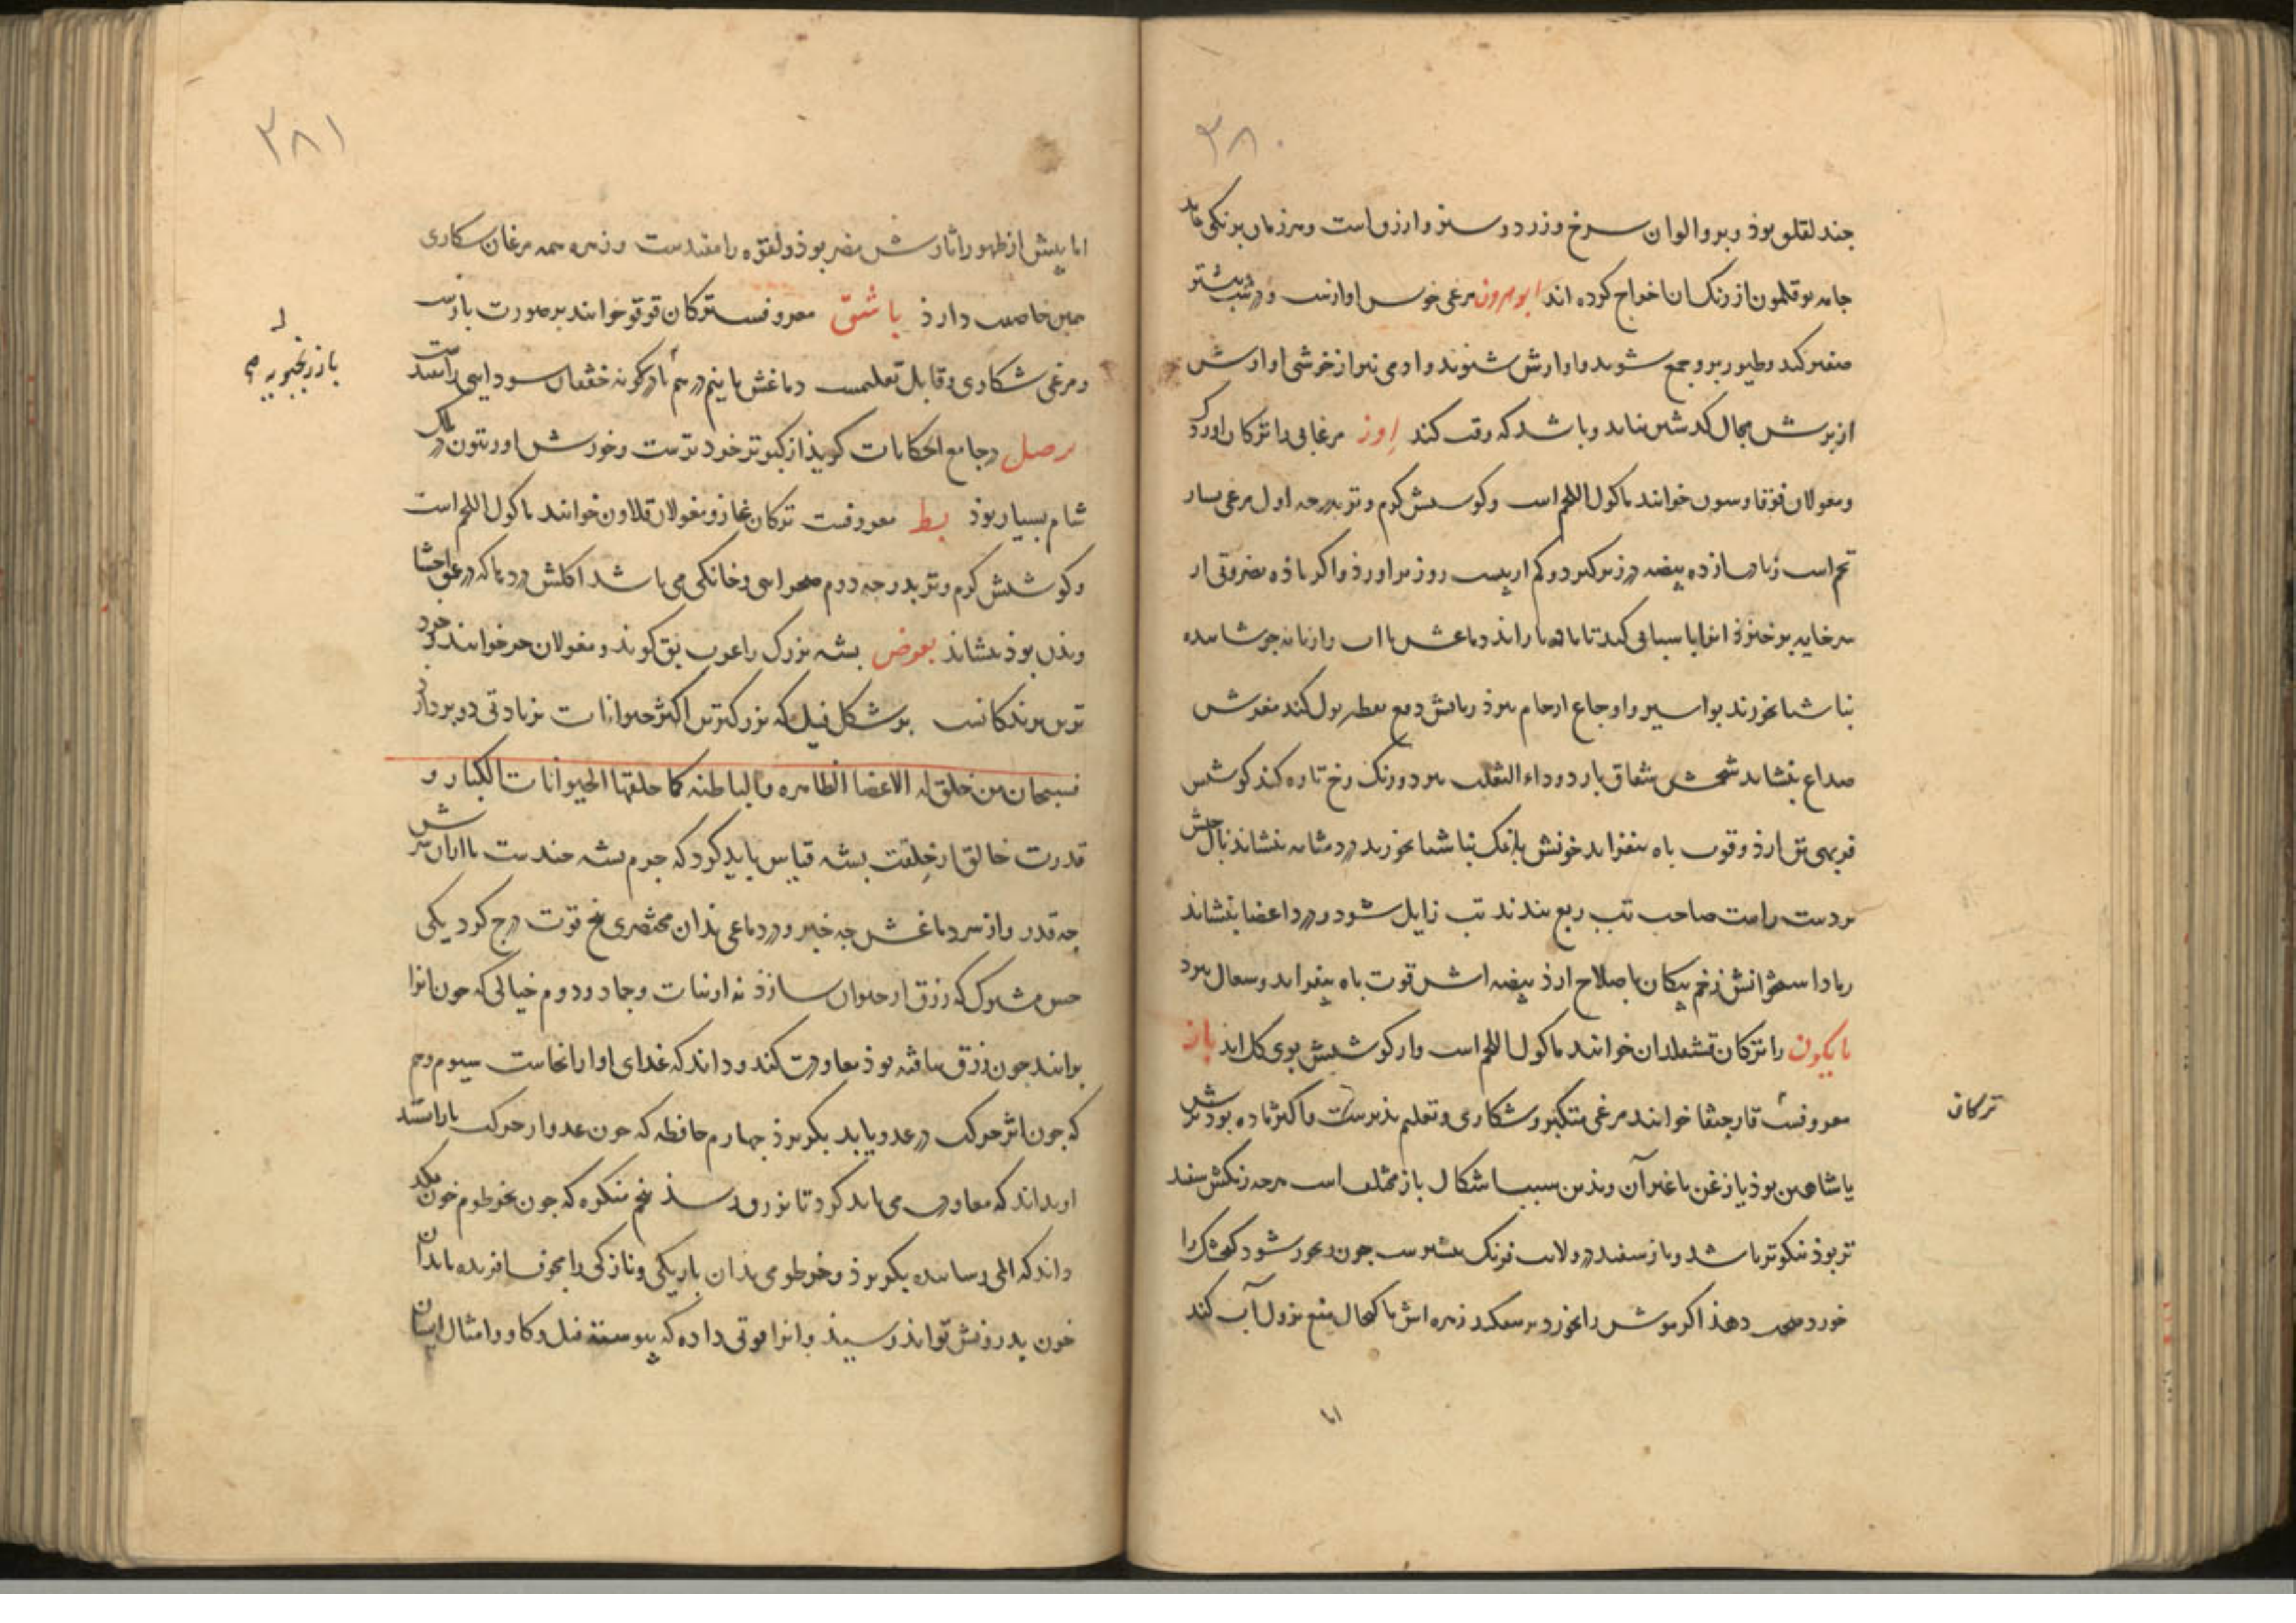 ۳۸۰
جند لقلق بوذ و برو الوان سرخ و زرد و سبز و ازرق است و هر زمان برنکی نماید
جامه بوقلمون از رنک ان اخراج کرده اند ابوهرون مرغی خوس اوازست و در شب بیشتر
صفیر کند و طیور برو جمع شوند و اوازش شنوند و ادمی نیز از خوشی اوازش
از برش مجال کدشتن نیابد و باشد که رقت کند اوز مرغابی را ترکان اوردک
و مغولان خوانند ماکول اللحم است و کوستش کرم و تر بدرجه اول مرغی بسیار
تخم است زیادت از ده بیضه در زیر کیرد و کم از بیست روز براورذ و اکر ماده بضروتی از
سر خایه برخیزذ نر انرا پاسبانی کند تا ماده باز اید دماغش با اب رازیانه جوشانیده
بناشتا بخورند بواسیر و اوجاع ارحام ببرذ زبانش دفع تقطیر بول کند مغزش
صداع بنشاند شحمش شقاق بارد و داء الثعلب ببرد و رنک رخ تازه کند کوشتش
فربهی تن ارذ و قوت باه بیفزاید خونش با نمک بناشتا بخورند درد مثانه بنشاند بال چپش
بر دست راست صاحب تب ربع بندند تب زایل شود و درد اعضا بنشاند
رماد استخوانش زخم پیکان باصلاح ارذ بیضه اش قوت باه بیفزاید و سعال ببرد
بایکون را ترکان قشقلدان خوانند ماکول اللحم است و از کوشتش بوی کل اید باز
معروفست قارجغا خوانند مرغی متکبر و شکاری و تعلیم پذیرست و اکثر ماده بوذ نرش
ترکان
یا شاهین بوذ یا زغن یا غیر آن و بذین سبب اشکال باز مختلف است هرجه رنکش سفید
تر بوذ نیکوتر باشد و باز سفید در ولایت فرنک بیشترست جون رنجور شود کنجشک را
خورد صحت دهذ اکر موش را بخورد زهره اش با کحال منع نزول آب کند
اما
۳۸۱
اما پیش از ظهور اثارش مضر بوذ و لقوه را مفیدست و زهره همه مرغان سکاری
همین خاصیت دارذ باشق معروفست ترکان قرقو خوانند بر صورت بازست
و مرغی شکاری و قابل تعلیمست دماغش با نیم درم خفقان سودایی را مفید است
برصل در جامع الحکایات کویذ از کبوتر خردترست و خورش او زیتون در ملک
شام بسیار بوذ بط معروفست ترکان غاز و مغولان قلاون خوانند ماکول اللحم است
و کوشتش کرم و تر بدرجه دوم صحرایی و خانکی می باشد اکلش درد را که در عمق احشا
و بذن بوذ بنشاند بعوض پشه بزرک را عرب بق کویند و مغولان خوانند خرد
ترین پرندکانست بر شکل فیل که بزرکترین اکثر حیوانات بزیادتی دو پر دراز
فسبحان من خلق له الاعضا الظاهره والباطنه کما خلقها الحیوانات الکبار و
قدرت خالق از خلقت پشه قیاس باید کرد که جرم پشه جندست تا ازان سرش
جه قدر و از سر دماغش جه خیر و در دماغی بذان مختصری پنج قوت درج کرد یکی
حس مشترک که رزق از حیوان سازذ نه از نبات و جماد و دوم خیالی که جون انرا
براند جون رزق یافته بوذ معاودت کند و داند که غدای او ازانجاست سیوم وهم
که جون اثر حرکت در عدو یابد بکریزذ جهارم حافظه که جون عدو از حرکت باز استد
او بداند که معاودت می باید کرد تا برزق رسذ پنجم متفکره که جون بخرطوم خون مکد
داند که المی رسانیده بکریزذ و خرطومی بذان باریکی و نازکی را مجوف افریده تا بدان
خون بدرونش تواند رسیذ و انرا قوتی داده که بپوست فیل و کاو و امثال ایشان